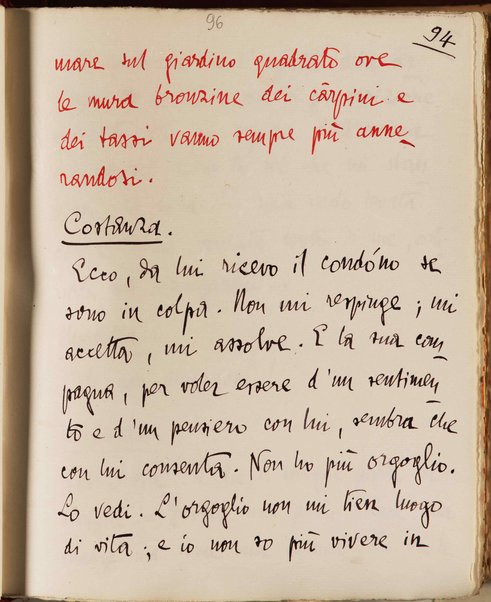 96
94
mare sul giardino quadrato ove
le mura bronzine dei càrpini e
dei tassi vanno sempre più anne_
randosi.
Costanza.
Ecco, da lui ricevo il condóno se
sono in colpa. Non mi respinge; mi
accetta, mi assolve. E la sua com_
pagna, per voler essere d'un sentimen_
to e d'un pensiero con lui, sembra che
con lui consenta. Non ho più orgoglio.
Lo vedi. L'orgoglio non mi tien luogo
di vita; e io non so più vivere in